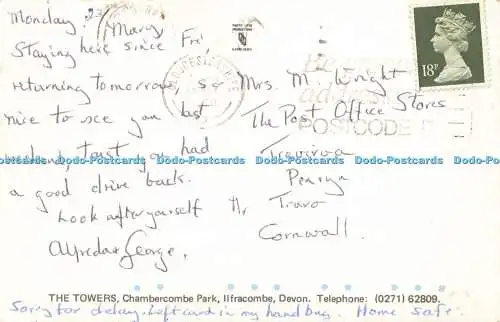 Monday.
Mary
Staying here since Fri,
returning tomorrow, so
nice to see you last
weekend, trust you had
a good drive back.
Look after yourself
Alfreda & George.
18P
Mrs. M. Wright
The Post Office Stores
Penryn
Truro
Cornwall.
POSTCODE
Dodo-Postcards Dodo-Postcards Dodo-Postcards Dodo-Postcards Dodo-Postcards
THE TOWERS, Chambercombe Park, Ilfracombe, Devon. Telephone: (0271) 62809.
Sorry for delay. Left card in my handbag. Home safe.